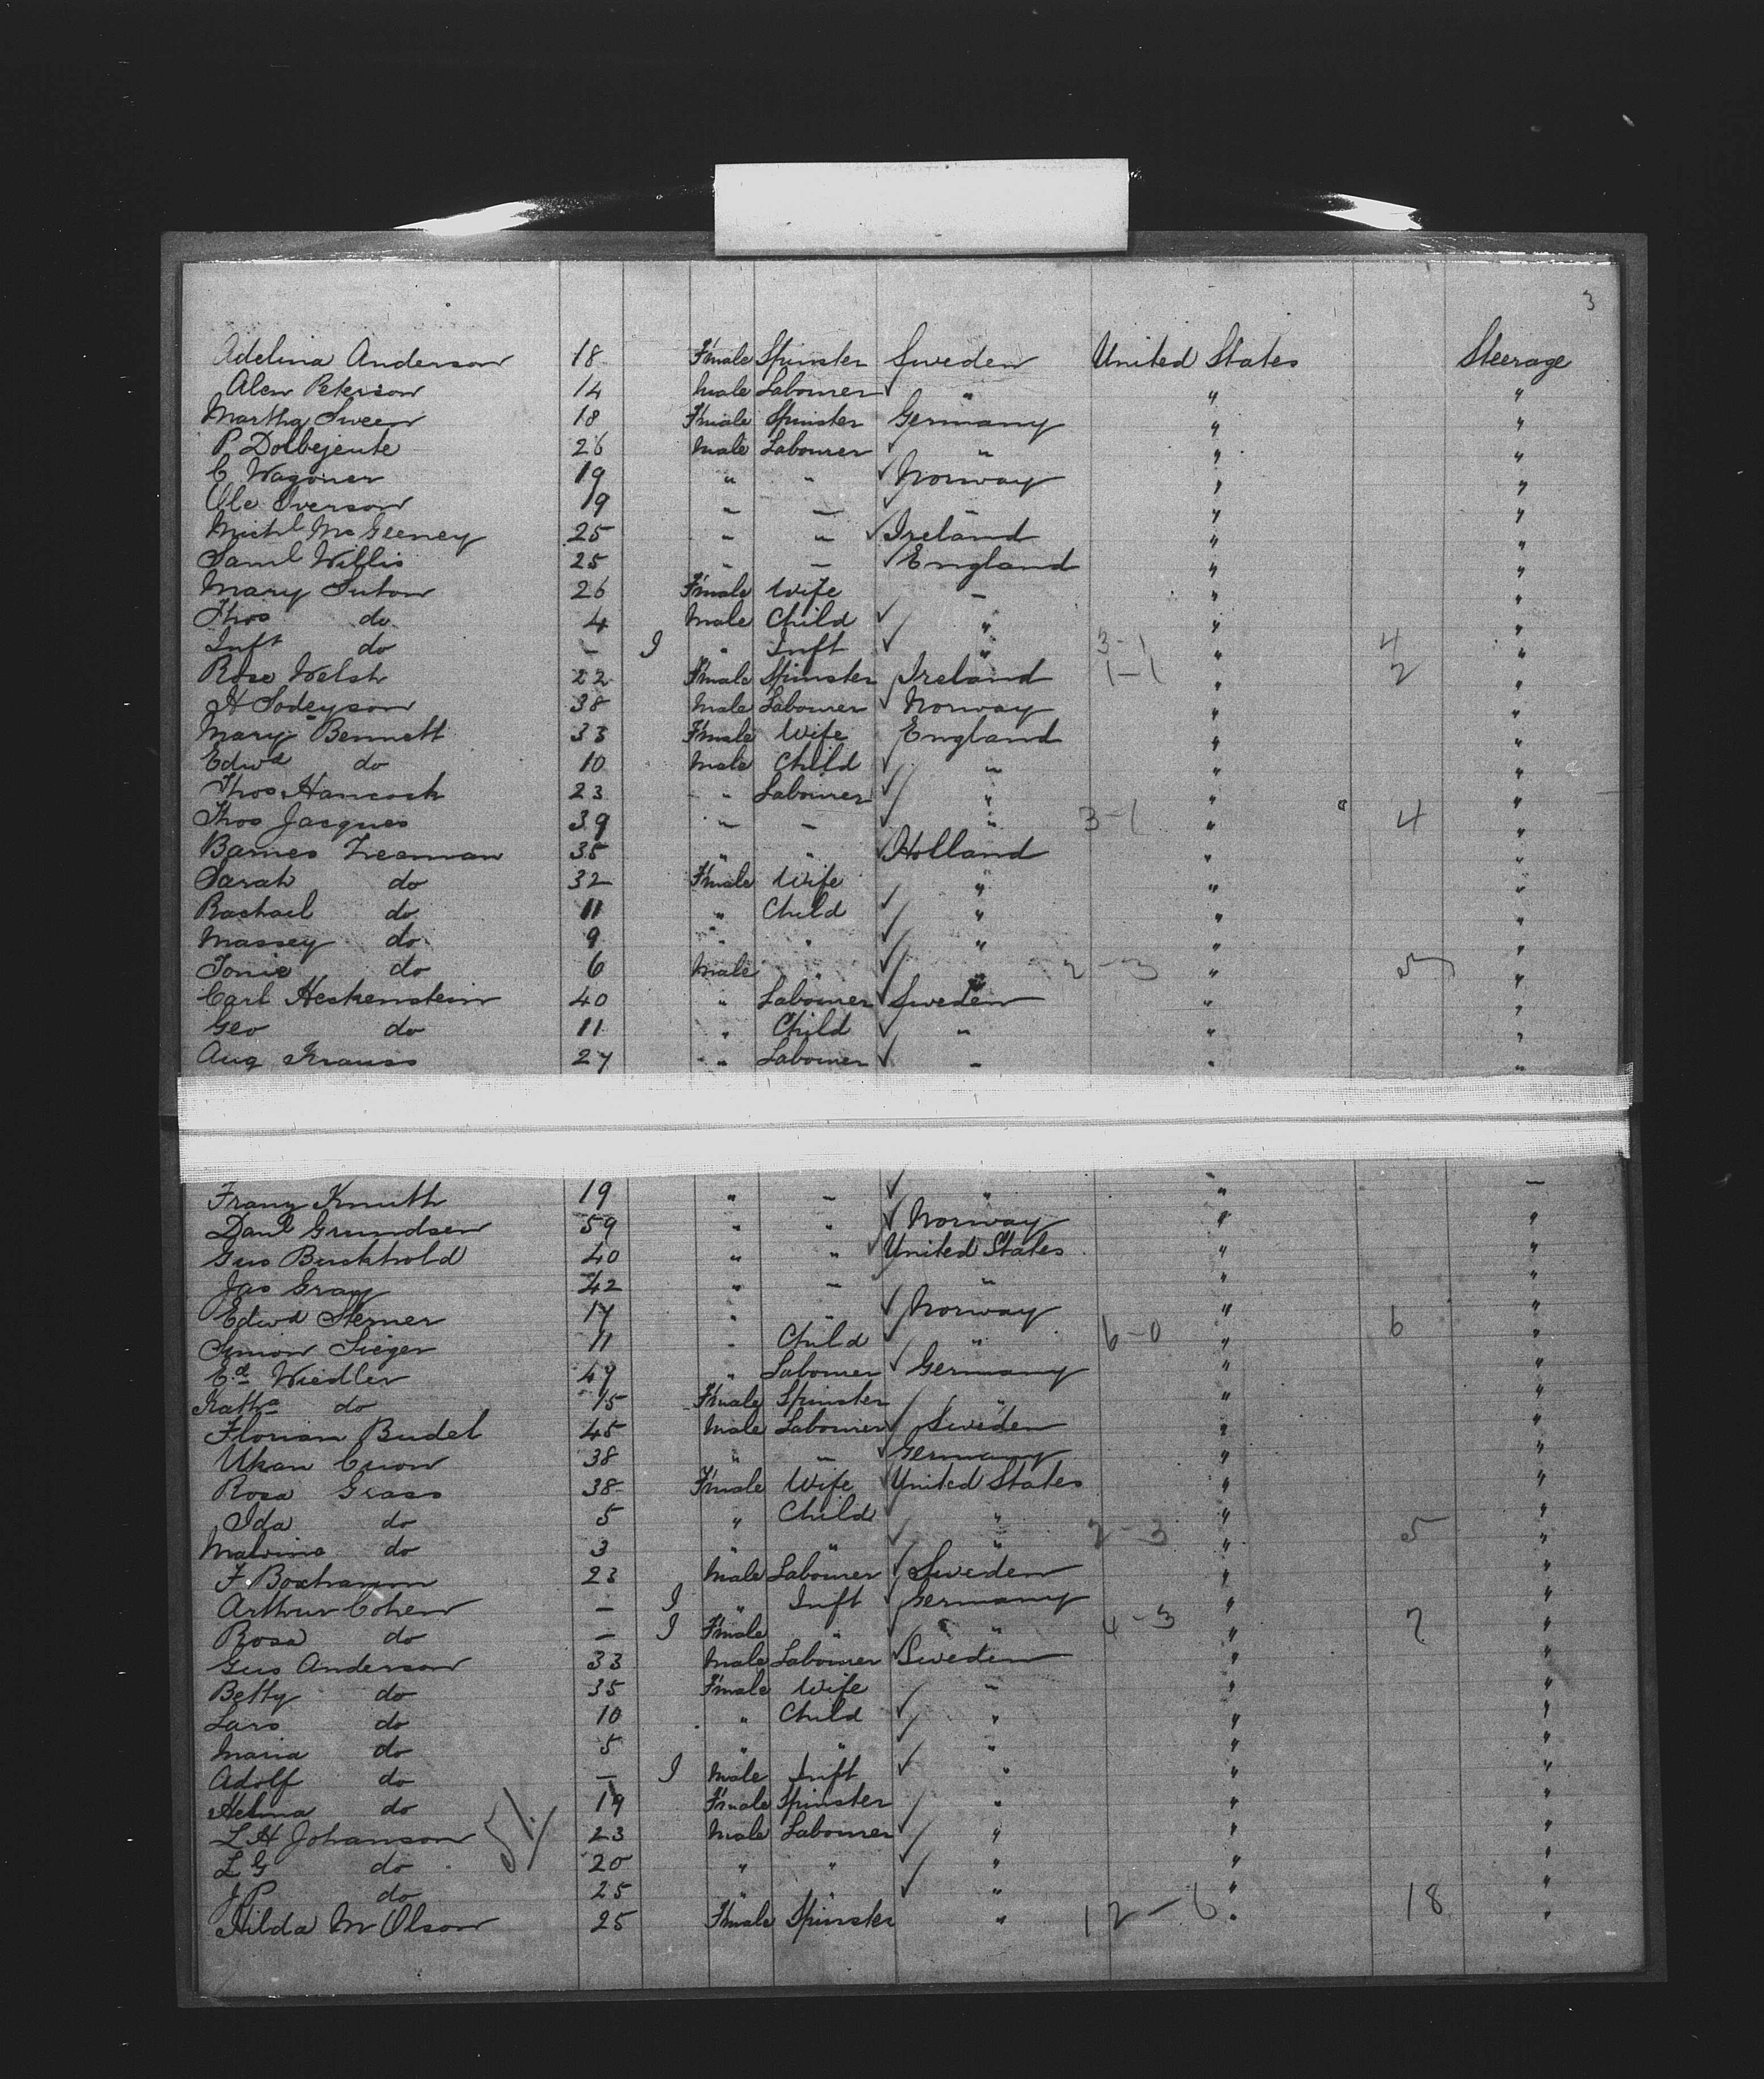 3
Adelina Anderson 18 Female Spinster Sweden United States Steerage
Alen Peterson 14 Male Labourer ✓ " " "
Martha Sween 18 Female Spinster Germany " "
P. Dolbejente 26 Male Labourer ✓ " " "
C Wagoner 19 " " ✓ Norway " "
Ole Iverson 19 " " ✓ " " "
Michl McGeeney 25 " " ✓ Ireland " "
Saml Willis 25 " " ✓ England " "
Mary Suton 26 Female Wife " " "
Thos do 4 Male Child ✓ " " "
Inft do — I " Inft ✓ " 3-1 " 4 "
Rose Welsh 22 Female Spinster Ireland 1-1 " 2 "
H Sodeyson 38 Male Labourer ✓ Norway " "
Mary Bennett 33 Female Wife England " "
Edwd do 10 Male Child ✓ " " "
Thos Hancock 23 " Labourer ✓ " " "
Thos Jacques 39 " " ✓ " 3-1 " 4 "
Barnes Freeman 35 " " ✓ Holland " "
Sarah do 32 Female Wife " " "
Rachael do 11 " Child ✓ " " "
Massey do 9 " " ✓ " " "
Tonie do 6 Male " ✓ " 2-3 " 5 "
Carl Heckenstein 40 " Labourer ✓ Sweden " "
Geo do 11 " Child ✓ " " "
Aug Krauss 27 " Labourer ✓ " " "
Franz Knuth 19 " " ✓ " " "
Danl Grundsen 59 " " ✓ Norway " "
Gus Buckhold 40 " " ✓ United States " "
Jas Gray 42 " " " " "
Edwd Sterner 17 " " ✓ Norway " "
Simon Sieger 11 " Child ✓ " 6-0 " 6 "
Ed Wiedler 47 " Labourer ✓ Germany " "
Katha do 15 Female Spinster " " "
Florian Budel 45 Male Labourer ✓ Sweden " "
Ukan Cuon 38 " " ✓ Germany " "
Rosa Grass 38 Female Wife United States " "
Ida do 5 " Child ✓ " " "
Malvina do 3 " " ✓ " 2-3 " 5 "
F. Boxhamm 23 Male Labourer ✓ Sweden " "
Arthur Cohen — I " Inft ✓ Germany " "
Rosa do — I Female " ✓ " 4-3 " 7 "
Gus Anderson 33 Male Labourer ✓ Sweden " "
Betty do 35 Female Wife " " "
Lars do 10 " Child ✓ " " "
Maria do 5 " " ✓ " " "
Adolf do — I Male Inft ✓ " " "
Helma do 19 Female Spinster " " "
L H Johanson 23 Male Labourer ✓ " " "
L G do 20 " " ✓ " " "
J P do 25 " " ✓ " " "
Hilda M Olson 25 Female Spinster " 12-6 " 18 "